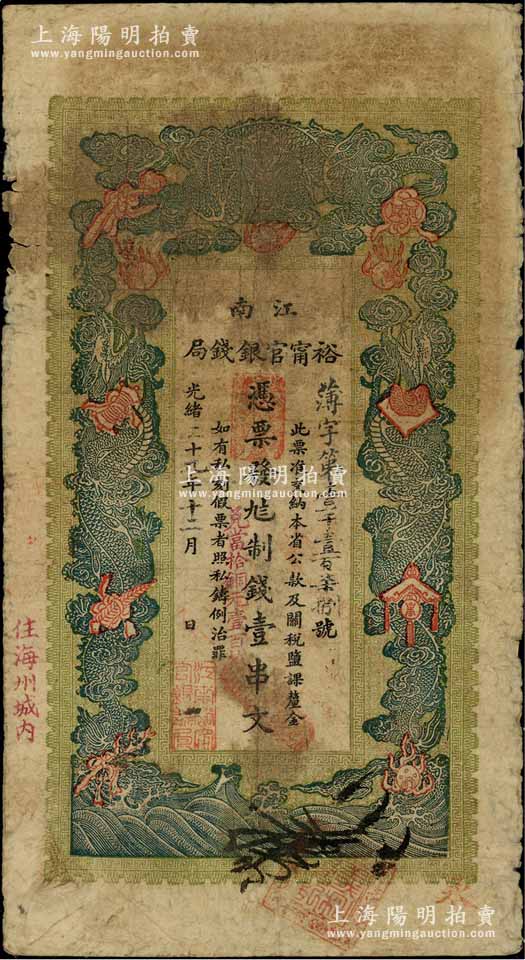 上海陽明拍賣
www.yangmingauction.com
江南
裕甯官銀錢局
薄字第壹千壹百柒拾號
此票准完納本省公款及關稅鹽課釐金
憑票發足制錢壹串文
兌當拾銅元壹百
如有私刻假票者照私鑄例治罪
光緒二十九年十二月 日
住海州城內
上海陽明拍賣
www.yangmingauction.com
上海陽明拍賣
www.yangmingauction.com